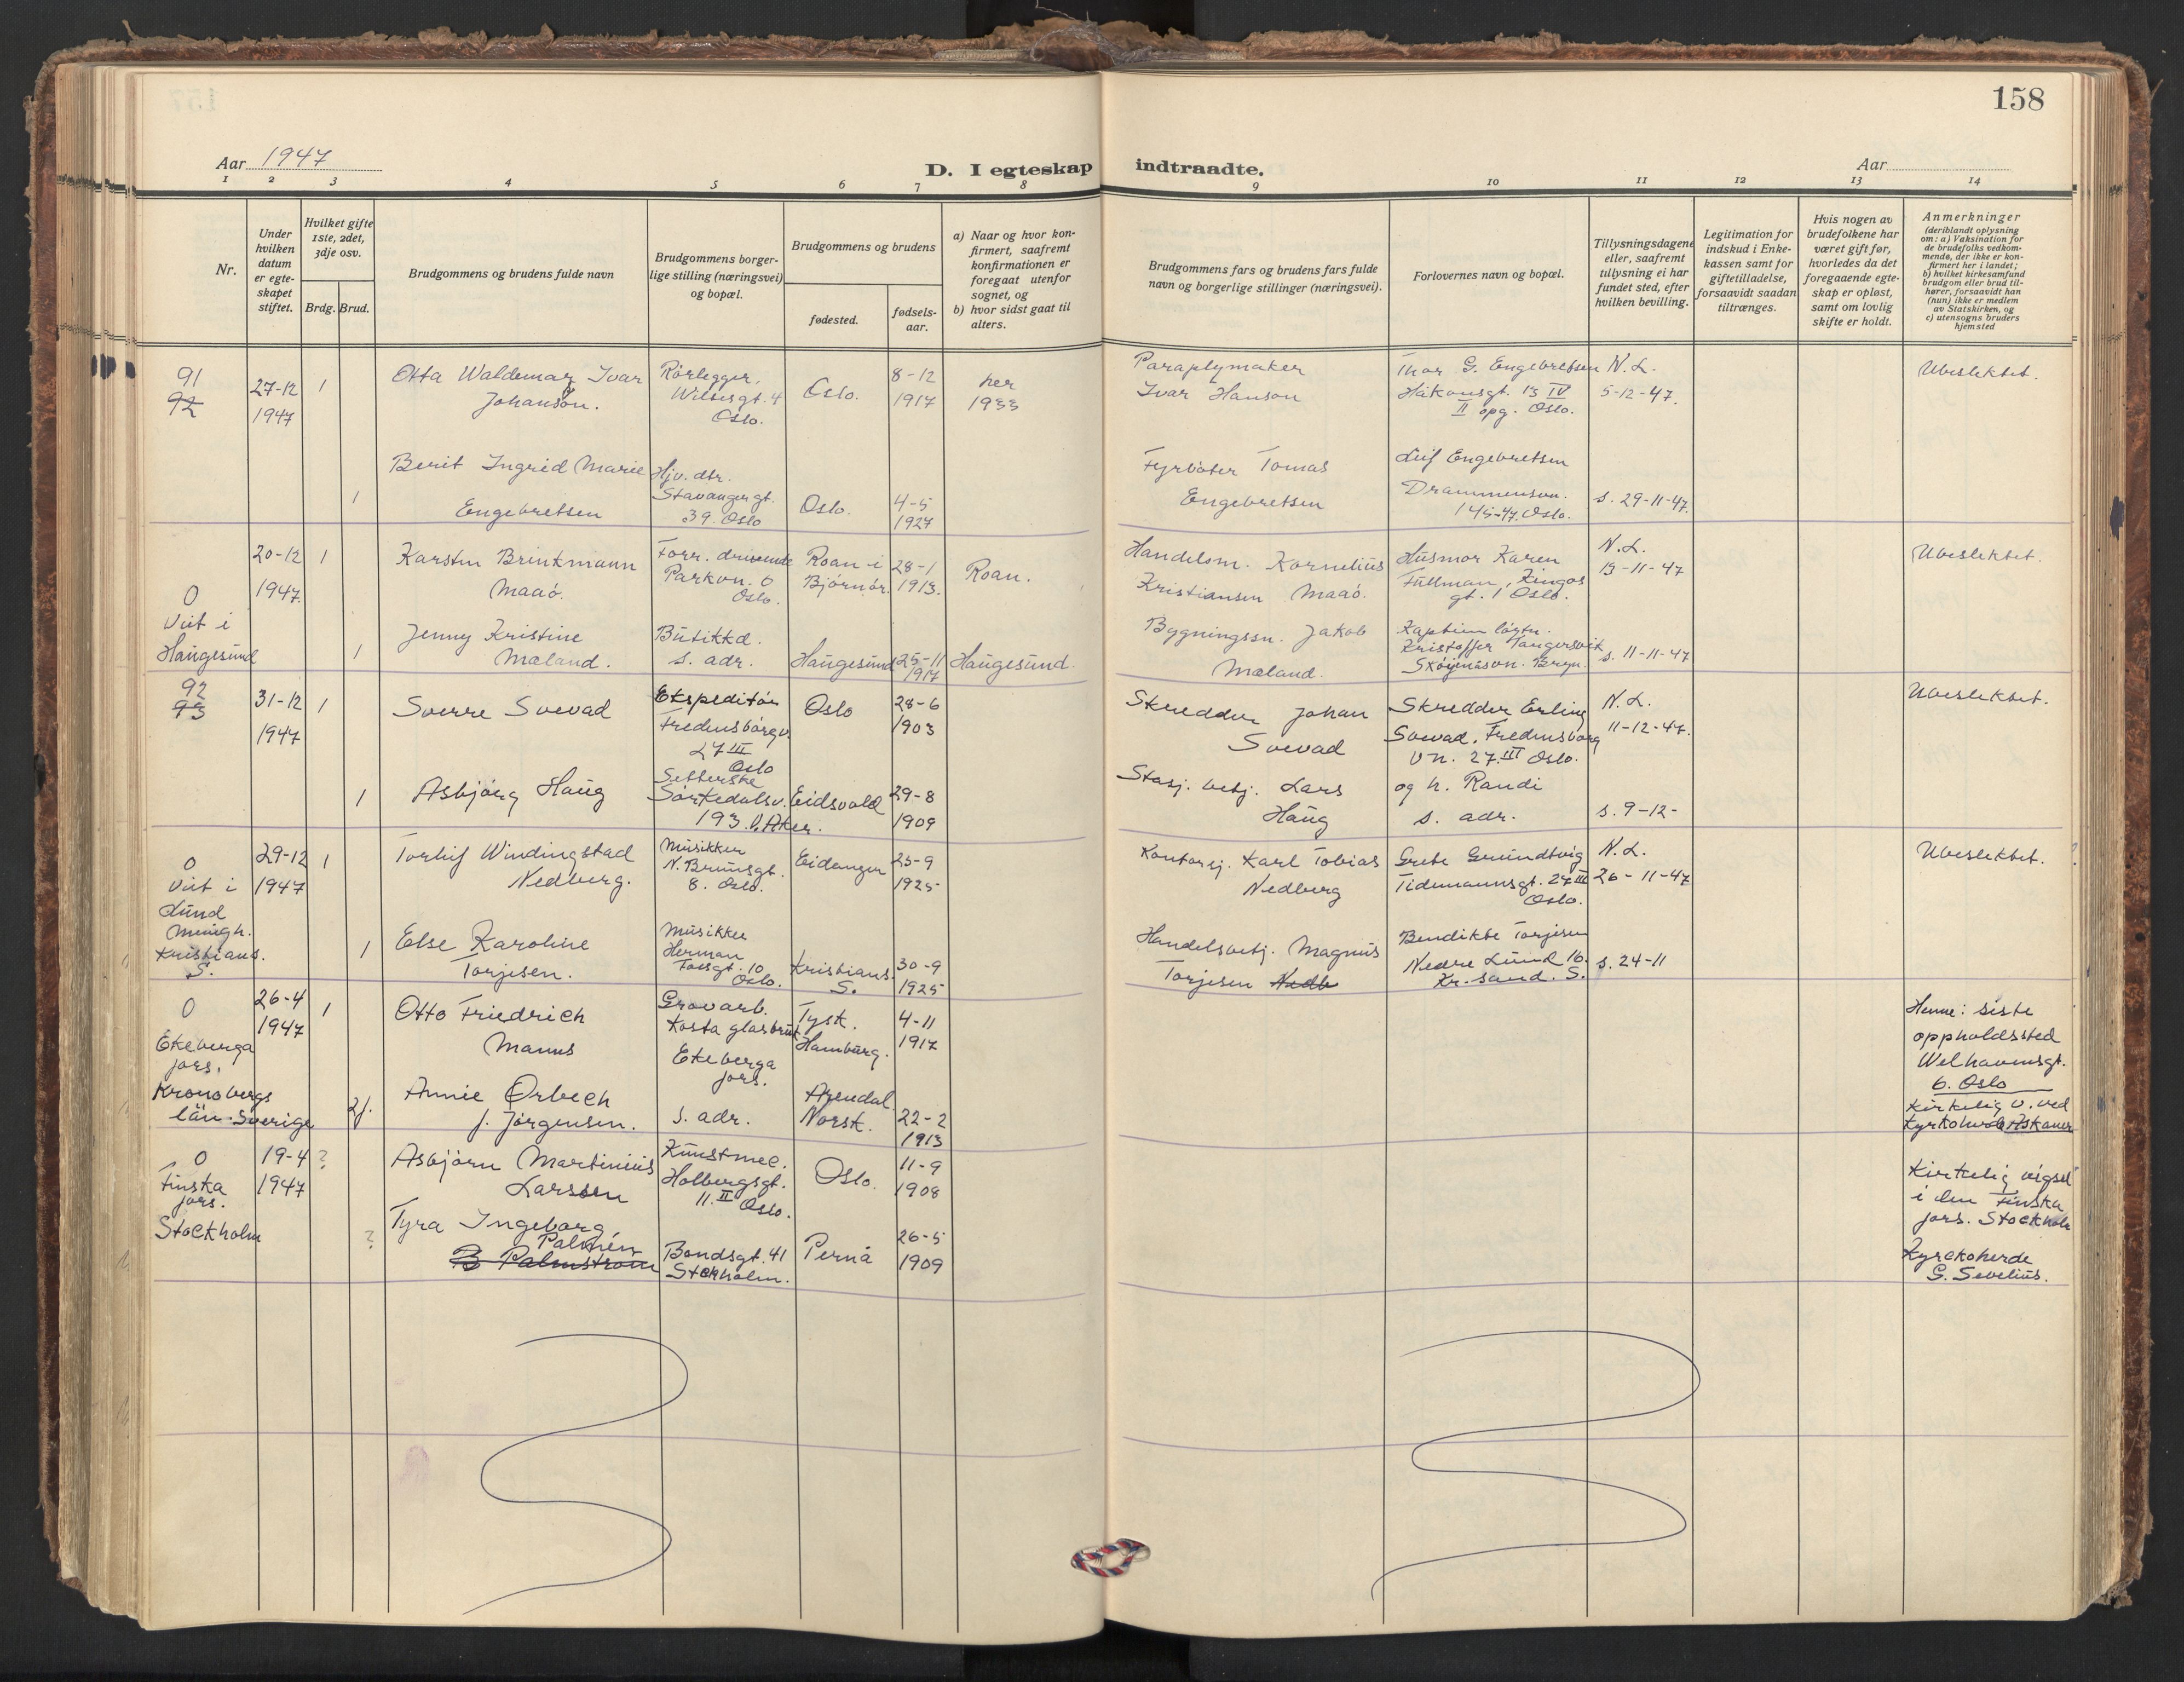 158
Aar 1947
D. I egteskap indtraadte.
Aar
1 2 3 4 5 6 7 8 9 10 11 12 13 14
Nr.
Under
hvilken
datum
er egte-
skapet
stiftet.
Hvilket gifte
1ste, 2det,
3dje osv.
Brdg. Brud.
Brudgommens og brudens fulde navn
Brudgommens borger-
lige stilling (næringsvei)
og bopæl.
Brudgommens og brudens
fødested.
fødsels-
aar.
a) Naar og hvor kon-
firmert, saafremt
konfirmationen er
foregaat utenfor
sognet, og
b) hvor sidst gaat til
alters.
Brudgommens fars og brudens fars fulde
navn og borgerlige stillinger (næringsvei).
Forlovernes navn og bopæl.
Tillysningsdagene
eller, saafremt
tillysning ei har
fundet sted, efter
hvilken bevilling.
Legitimation for
indskud i Enke-
kassen samt for
giftetilladelse,
forsaavidt saadan
tiltrænges.
Hvis nogen av
brudefolkene har
været gift før,
hvorledes da det
foregaaende egte-
skap er opløst,
samt om lovlig
skifte er holdt.
Anmerkninger
(deriblandt oplysning
om: a) Vaksination for
de brudefolks vedkom-
mende, der ikke er kon-
firmert her i landet;
b) hvilket kirkesamfund
brudgom eller brud til-
hører, forsaavidt han
(hun) ikke er medlem
av Statskirken, og
c) utensogns bruders
hjemsted
91
92
27-12
1947
1
Otto Waldemar Ivar
Johanson.
Rørlegger,
Wilsesgt. 4
Oslo.
Oslo.
8-12
1917
her
1933
Paraplymaker
Ivar Hanson
Thor G. Engebretsen
Håkonsgt. 13 IV
II opg. Oslo.
N.L.
5-12-47.
Ubeslektet.
1
Berit Ingrid Marie
Engebretsen
Hjv. dtr.
Stavangergt.
39. Oslo
Oslo.
4-5
1927
Fyrbøter Tomas
Engebretsen
Leif Engebretsen
Drammensvn.
145-47. Oslo.
s. 29-11-47.
0
Viet i
Haugesund
20-12
1947.
1
Karsten Brinkmann
Maaø.
Forr. drivende
Parkvn. 6
Oslo.
Roan i
Bjørnør.
28-1
1913.
Roan.
Handelsm. Kornelius
Kristiansen Maaø.
Husmor Karen
Fullman, Zingos
gt. 1 Oslo.
N.L.
13-11-47
Ubeslektet.
1
Jenny Kristine
Mæland.
Butikkd.
s. adr.
Haugesund
25-11
1917
Haugesund.
Bygningssn. Jakob
Mæland.
Kaptein løytn.
Kristoffer Tangersvik
Skøyenåsvn. Bryn.
s. 11-11-47
92
93
31-12
1947
1
Sverre Svevad
Ekspeditør
Fredensborgv.
27 III
Oslo
Oslo
28-6
1903
Skredder Johan
Svevad
Skredder Erling
Svevad, Fredensborg
vn. 27 III Oslo.
N.L.
11-12-47.
Ubeslektet.
1
Asbjørg Haug
Setterske
Sørkedalsv.
193. V. Aker.
Eidsvold
29-8
1909
Stasj. betj. Lars
Haug
og h. Randi
s. adr.
s. 9-12-
0
Viet i
Lund
menigh.
Kristians.
S.
29-12
1947
1
Torleif Windingstad
Nedberg.
Musikker
N. Brunsgt.
8. Oslo.
Eidanger
25-9
1925
Kontorsj. Karl Tobias
Nedberg
Grete Grundtvig
Tidemannsgt. 27 III
Oslo.
N.L.
26-11-47
Ubeslektet.
1
Else Karoline
Torjesen.
Musikker
Herman
Fossgt. 10
Oslo.
Kristians.
S.
30-9
1925
Handelsbetj. Magnus
Torjesen Nedb
Bendikte Torjesen
Nedre Lund 16.
Kr. sand. S.
s. 24-11
0
Ekeberga
förs.
Kronobergs
län. Sverige
26-4
1947
1
Otto Friedrich
Manns
Grovarb.
Kosta glasbruk
Ekeberga
förs.
Tysk.
Hamburg.
4-11
1917
Henne: siste
oppholdssted
Welhavensgt.
6. Oslo
Kirkelig v. ved
Kyrkoherde Askaner
2/.
Annie Ørbech
f. Jørgensen.
s. adr.
Arendal.
Norsk.
22-2
1913
0
Finska
förs.
Stockholm
19-4
1947
?
Asbjørn Martinius
Larssen
Kunstmal.
Holbergsgt.
11. II Oslo.
Oslo.
11-9
1908
Kirkelig vigsel
i den Finska
förs. Stockholm
Kyrckoherde
G. Sevelius.
?
Tyra Ingeborg
Palmén
B Palmstrøm
Bondsgt. 41
Stokholm.
Pernå
26-5
1909